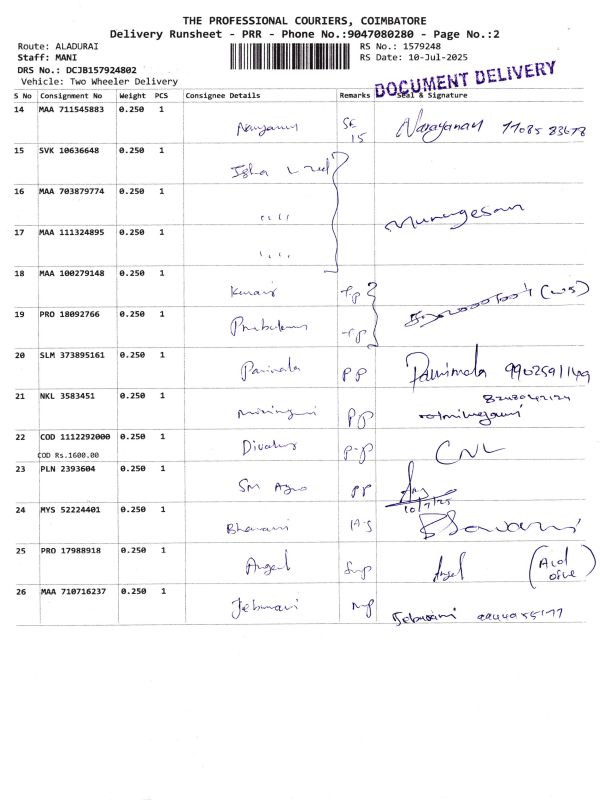 THE PROFESSIONAL COURIERS, COIMBATORE
Delivery Runsheet - PRR - Phone No.:9047080280 - Page No.:2
Route: ALADURAI
RS No.: 1579248
Staff: MANI
RS Date: 10-Jul-2025
DRS No.: DCJB157924802
Vehicle: Two Wheeler Delivery
DOCUMENT DELIVERY
S No Consignment No Weight PCS Consignee Details Remarks Seal & Signature
14 MAA 711545883 0.250 1 Narayanan 77085 83678
15 SVK 10636648 0.250 1
16 MAA 703879774 0.250 1 Murugesan
17 MAA 111324895 0.250 1
18 MAA 100279148 0.250 1
19 PRO 18092766 0.250 1
20 SLM 373895161 0.250 1 Parimala PP Parimala
21 NKL 3583451 0.250 1 PP
22 COD 1112292000 0.250 1 CNL
COD Rs.1600.00
23 PLN 2393604 0.250 1 SM Agro PP 10/7/25
24 MYS 52224401 0.250 1 Bhavani
25 PRO 17988918 0.250 1 Angel Angel
26 MAA 710716237 0.250 1 Jebarani Jebarani